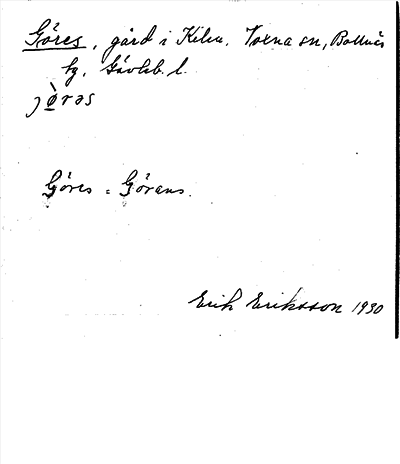 Göres, gård i Kilen. Voxna sn, Bollnäs
tg. Gävleb. l.
jò̲rəs
Göres = Görans.
Erik Eriksson 1930